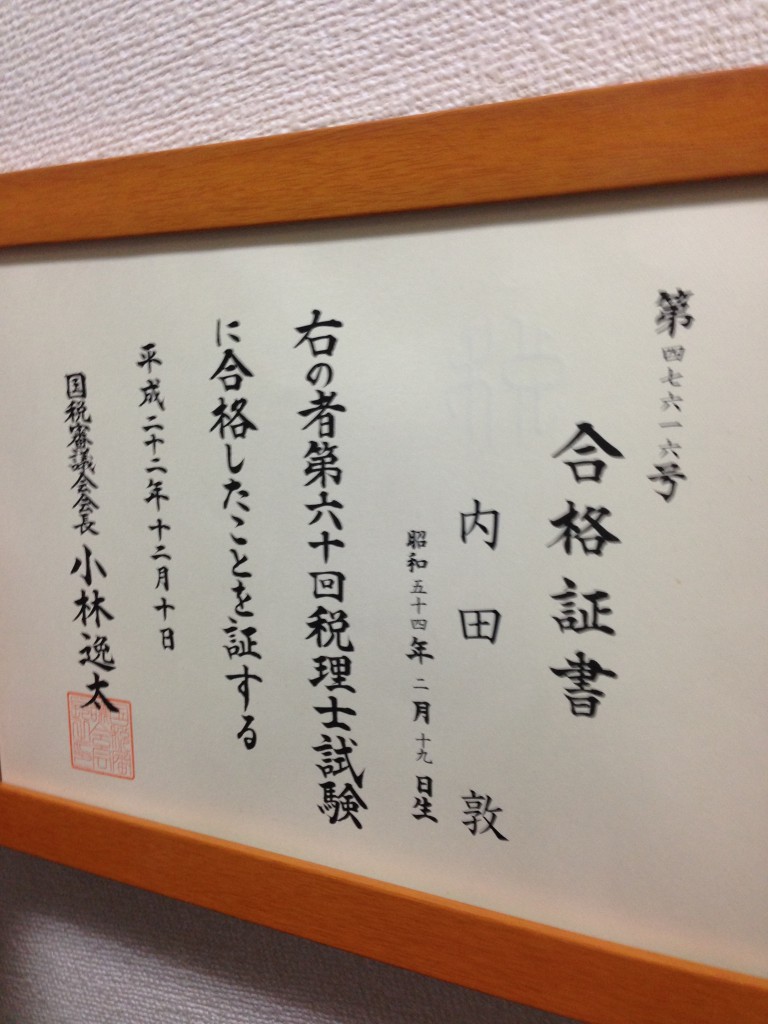 第四七六一六号
合格証書
内田 敦
昭和五十四年二月十九日生
右の者第六十回税理士試験
に合格したことを証する
平成二十二年十二月十日
国税審議会会長 小林逸太